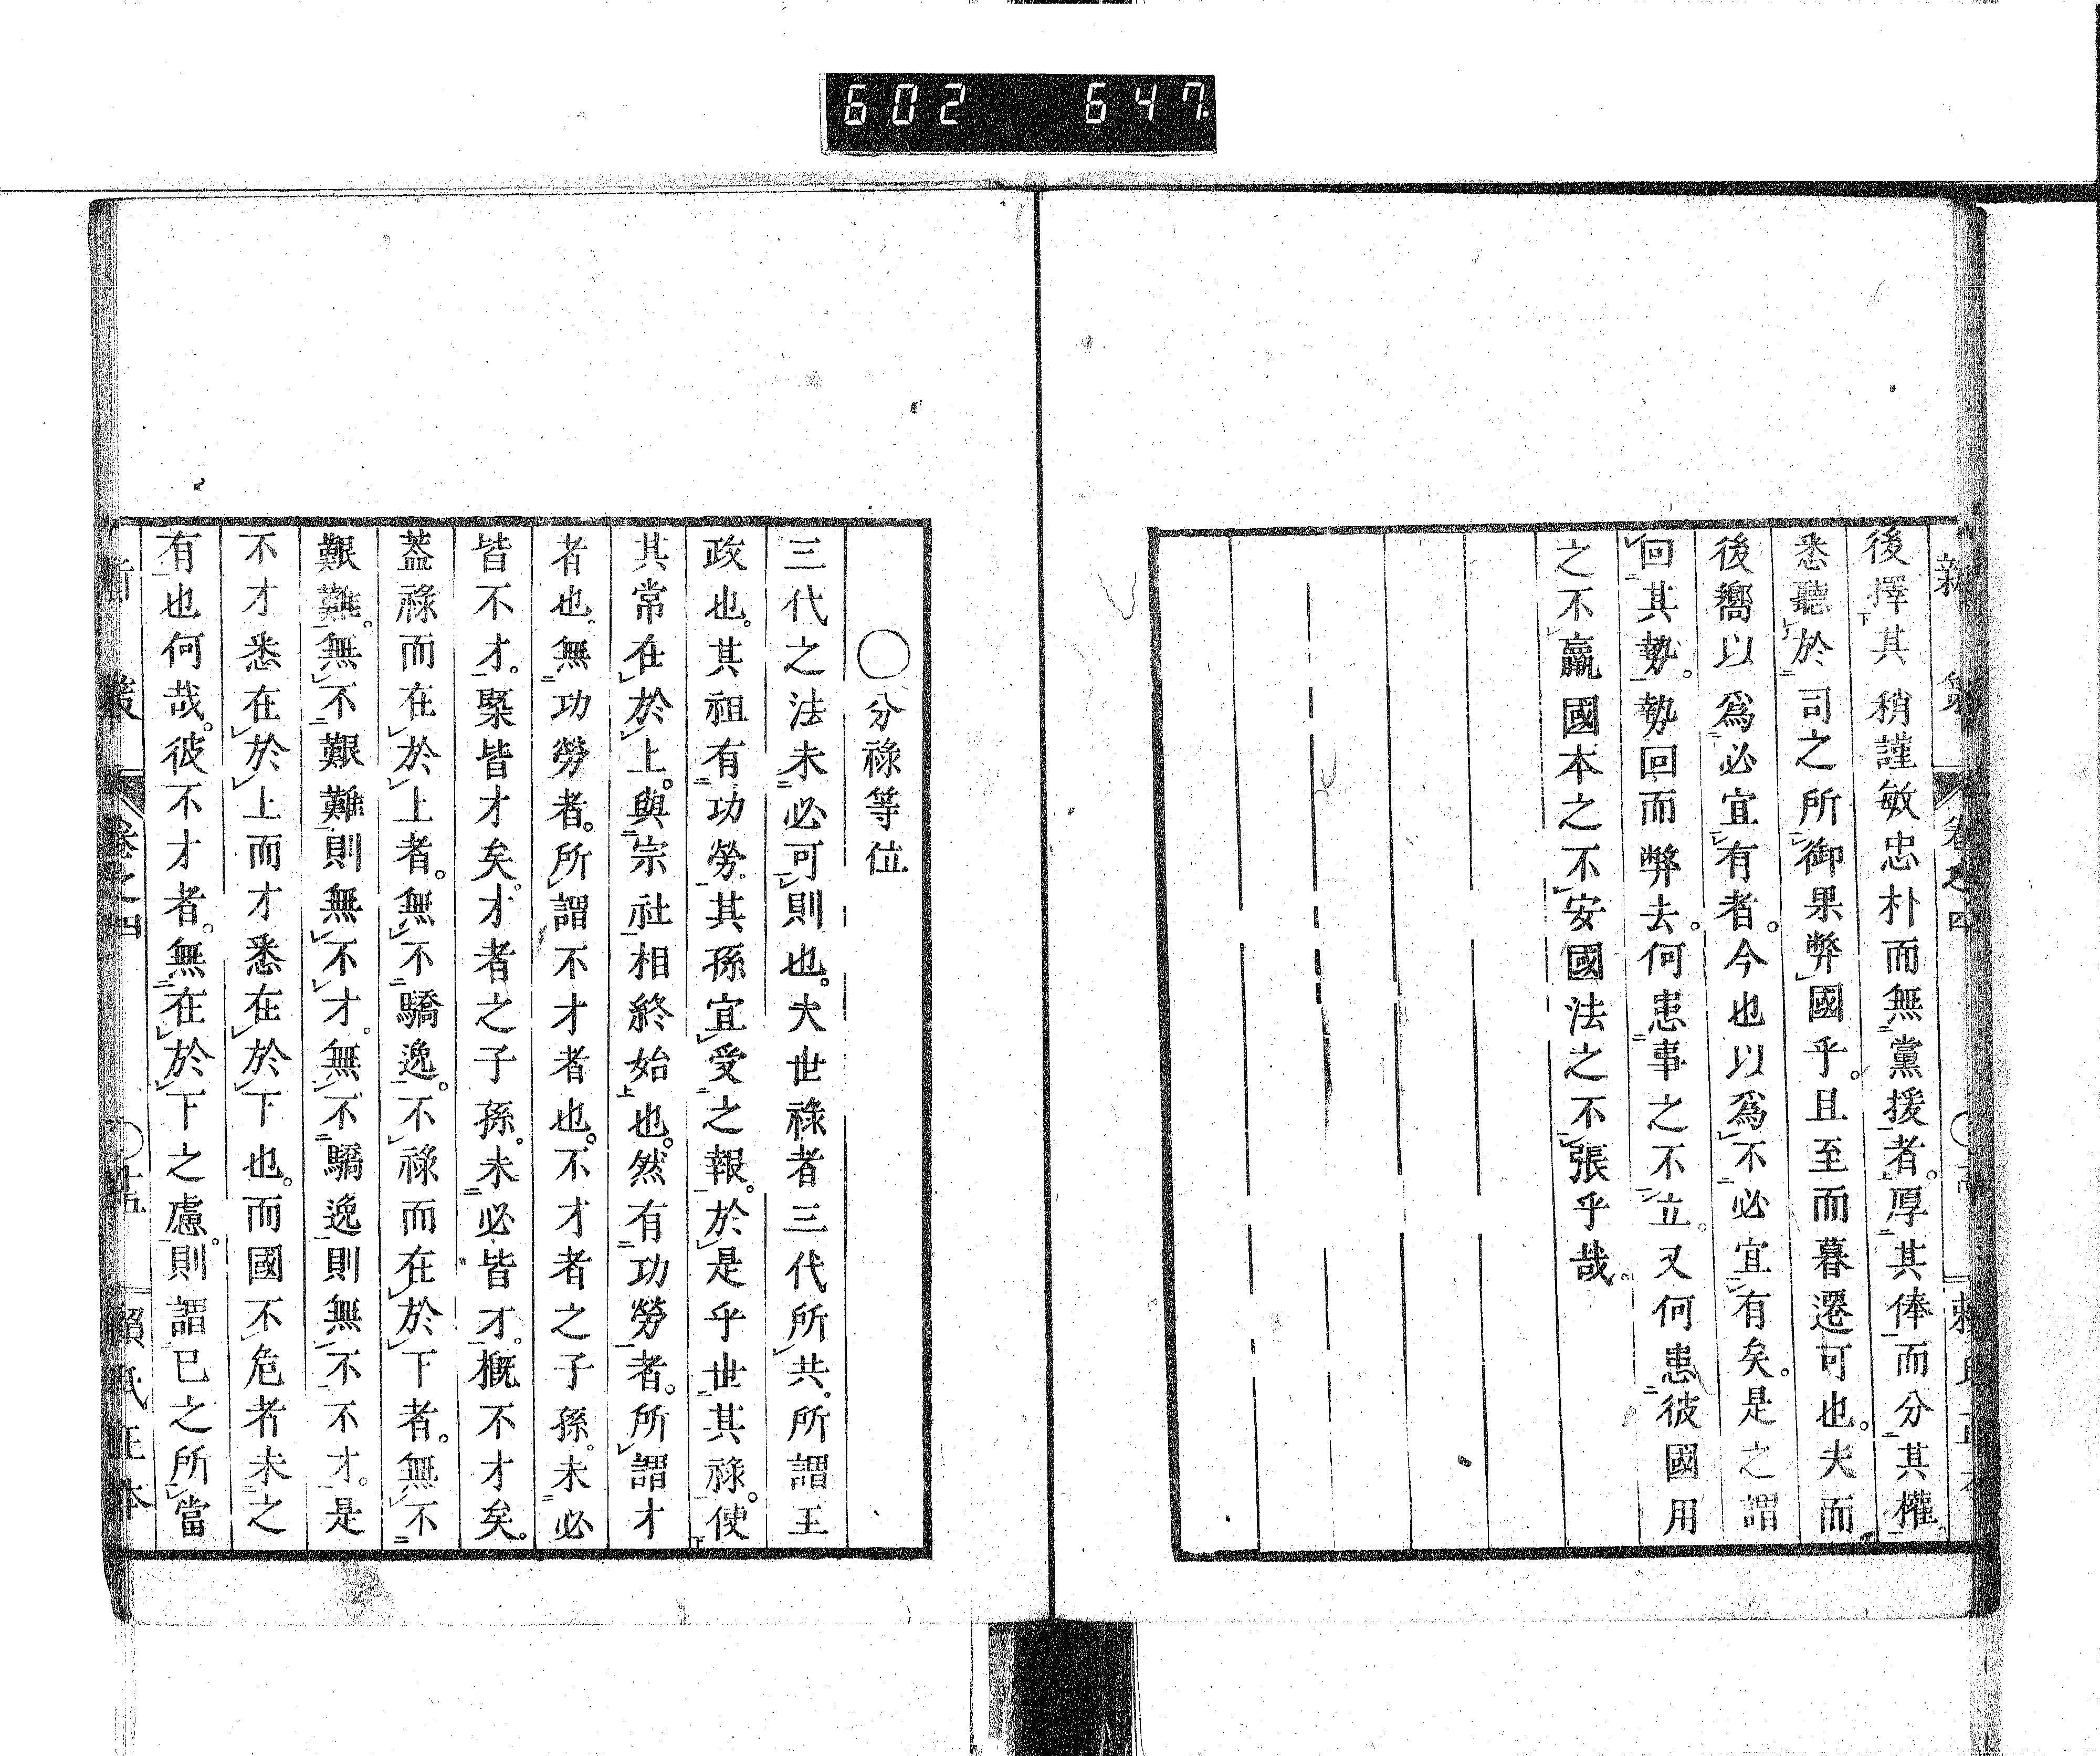 602 647
後擇其稍謹敏忠朴而無黨援者。厚其俸而分其權。
悉聽於司之所御果弊國乎。且至而暮遷可也。夫而
後嚮以爲必宜有者。今也以爲不必宜有矣。是之謂
回其勢。勢回而弊去。何患事之不立。又何患彼國用
之不贏國本之不安國法之不張乎哉。
〇分祿等位
三代之法未必可則也。夫世祿者三代所共。所謂王
政也。其祖有功勞。其孫宜受之報。於是乎世其祿。使
其常在於上。與宗社相終始也。然有功勞者。所謂才
者也。無功勞者。所謂不才者也。不才者之子孫。未必
皆不才。槩皆才矣。才者之子孫。未必皆才。概不才矣。
蓋祿而在於上者。無不驕逸。不祿而在於下者。無不
艱難。無不艱難則無不才。無不驕逸則無不不才。是
不才悉在於上而才悉在於下也。而國不危者未之
有也何哉。彼不才者。無在於下之慮。則謂已之所當
卷之四
賴氏正本